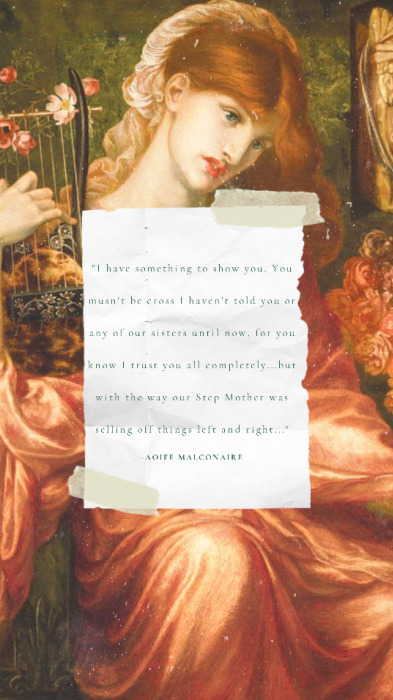 "I have something to show you. You
musn't be cross I haven't told you or
any of our sisters until now, for you
know I trust you all completely...but
with the way our Step Mother was
selling off things left and right..."
-AOIFE MALCONAIRE